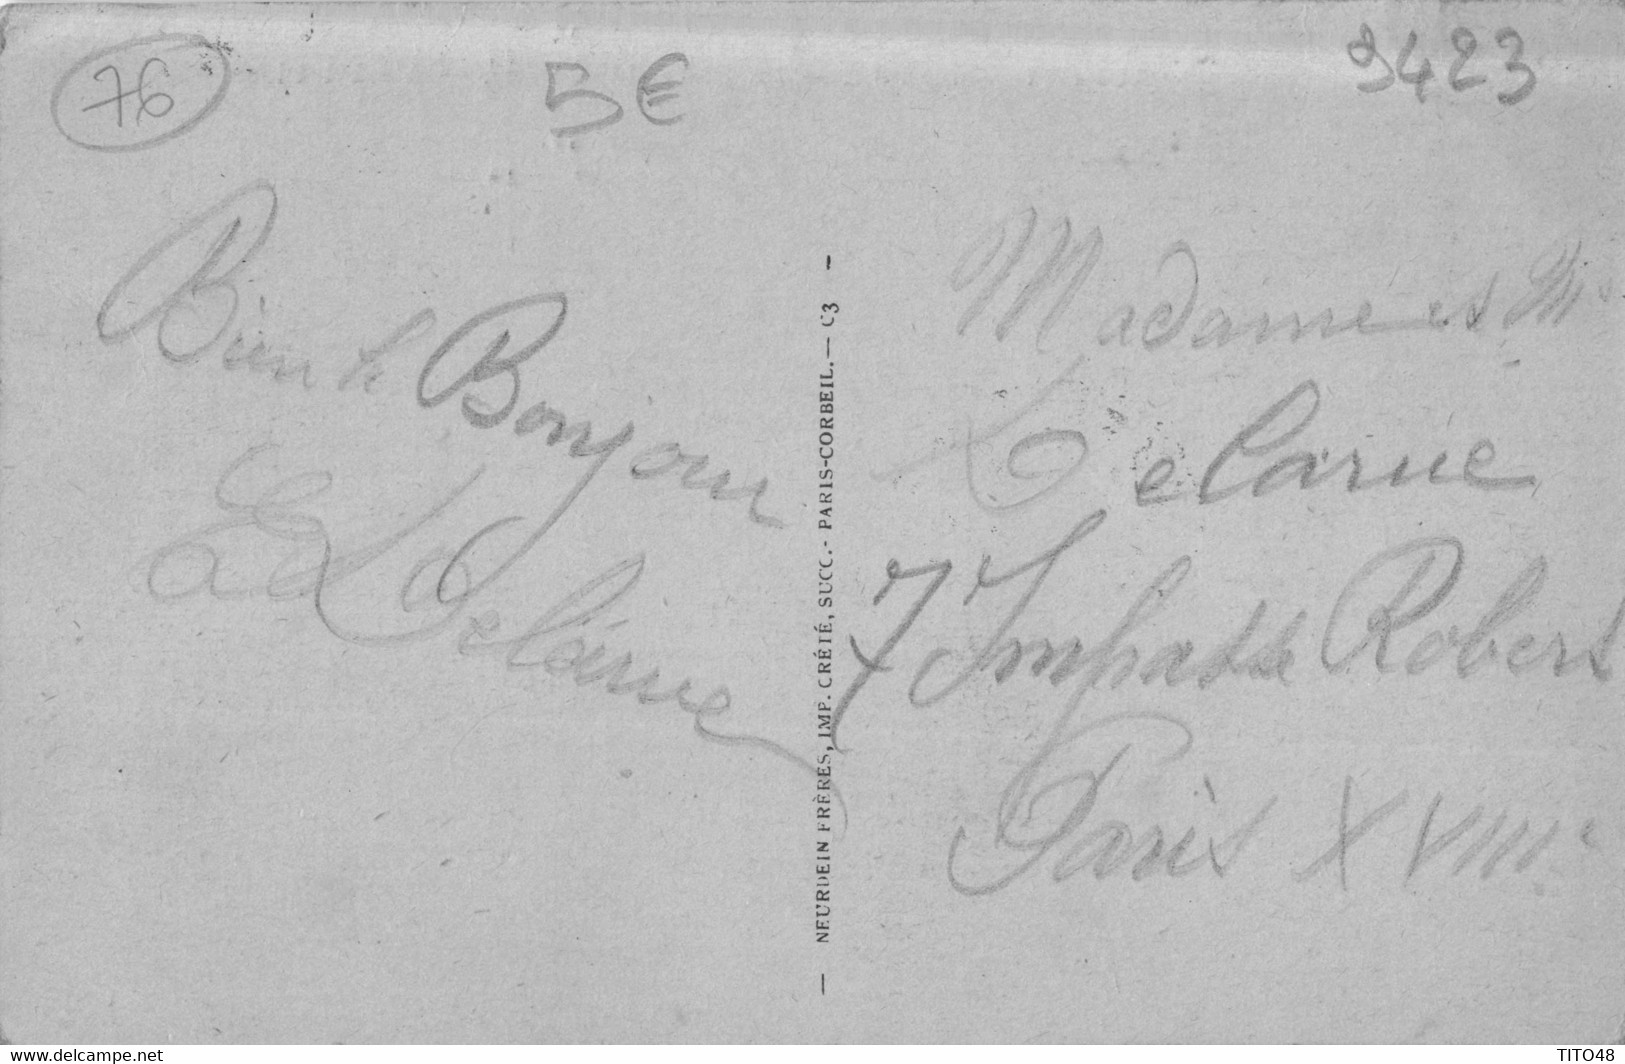 76
5€
9423
Bien le Bonjour
Delarue
NEURDEIN FRÈRES, IMP. CRÉTÉ, SUCC.- PARIS-CORBEIL.— C3
Madame et Mr
Delarue
7 Impasse Robert
Paris XVIIIe
www.delcampe.net
TITO48